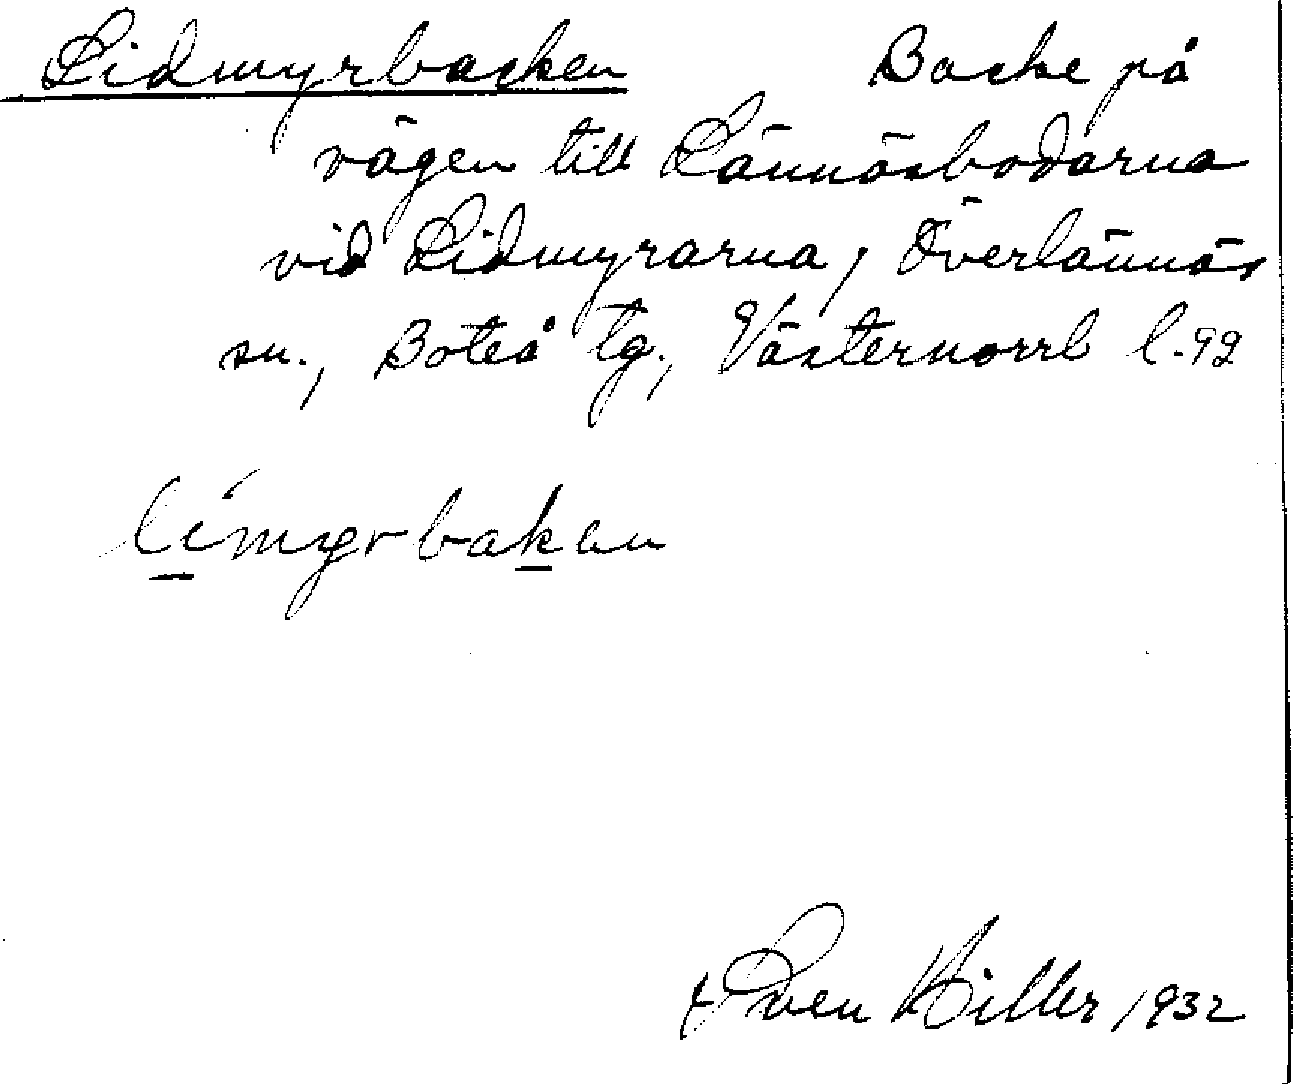 Lidmyrbacken Backe på
vägen till Lännäsbodarna
vid Lidmyrarna, Överlännäs
sn., Boteå tg., Västernorrl l.
límyrbakan
Sven Hiller 1932